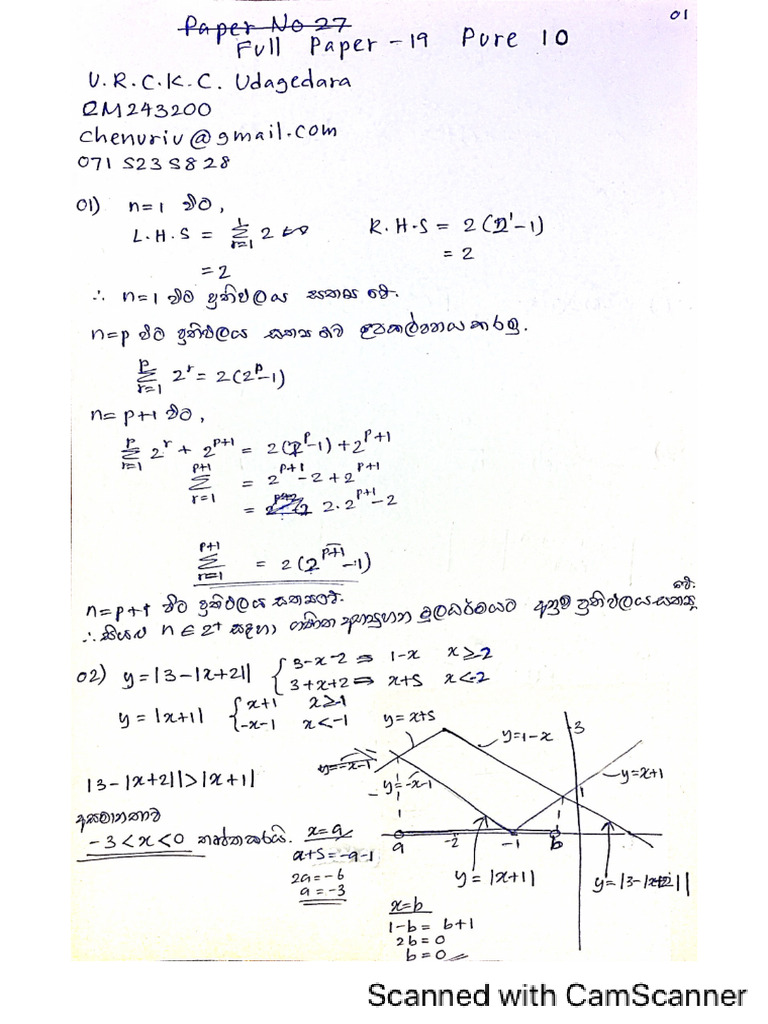 01
Paper No 27
Full Paper - 19 Pure 10
U.R.C.K.C. Udagedara
RM243200
chenuriu@gmail.com
071 523 5828
01) n=1 විට,
L.H.S = Σ_{r=1}^{1} 2 R.H.S = 2(2¹-1)
= 2 = 2
∴ n=1 විට ප්‍රතිඵලය සත්‍ය වේ.
n=p විට ප්‍රතිඵලය සත්‍ය බව උපකල්පනය කරමු.
Σ_{r=1}^{p} 2^r = 2(2^p-1)
n=p+1 විට,
Σ_{r=1}^{p} 2^r + 2^{p+1} = 2(2^p-1)+2^{p+1}
Σ_{r=1}^{p+1} = 2^{p+1}-2+2^{p+1}
= 2.2^{p+1}-2
Σ_{r=1}^{p+1} = 2(2^{p+1}-1)
n=p+1 විට ප්‍රතිඵලය සත්‍යවේ.
∴ සියලු n∈Z⁺ සඳහා ගණිත අභ්‍යුහන මූලධර්මයට අනුව ප්‍රතිඵලය සත්‍ය වේ.
02) y=|3-|x+2|| { 3-x-2 ⇒ 1-x x≥-2
3+x+2 ⇒ x+5 x<-2
y=|x+1| { x+1 x≥-1
-x-1 x<-1
y=x+5
y=1-x
3
y=-x-1
y=x+1
y=-x-1
1
a -2 -1 b
y=|x+1|
y=|3-|x+2||
|3-|x+2||>|x+1|
අසමානතාව
-3<x<0 තෘප්ත කරයි.
x=a
a+5=-a-1
2a=-6
a=-3
x=b
1-b=b+1
2b=0
b=0
Scanned with CamScanner